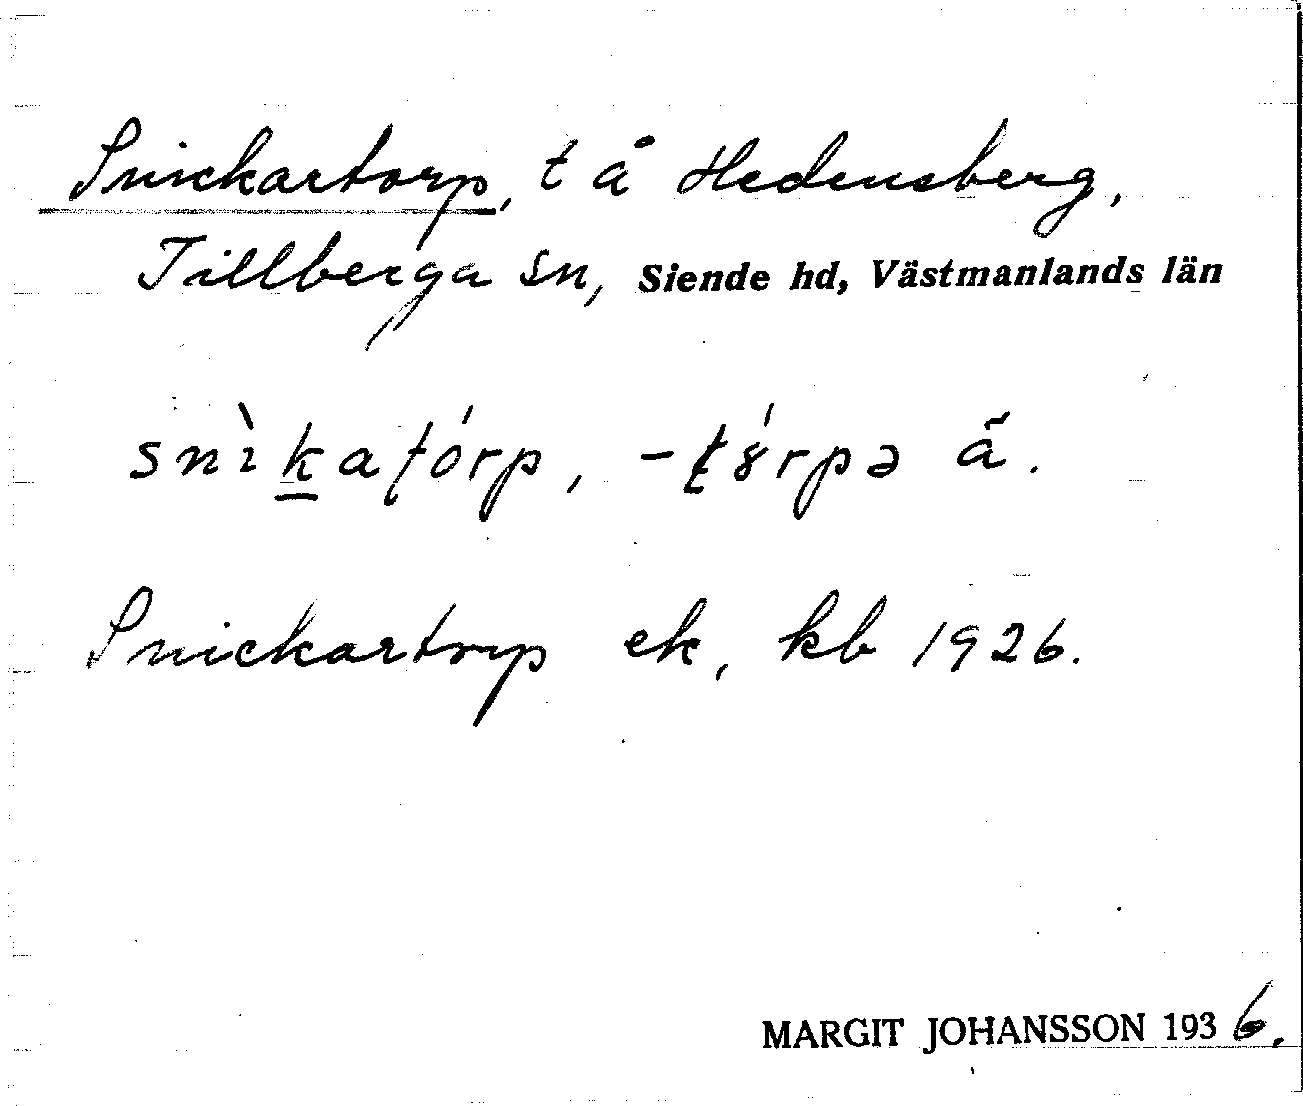 Snickartorp, t å Hedensberg,
Tillberga sn, Siende hd, Västmanlands län
snìk̲aƫórp, -ƫȣ́rpə ä̃.
Snickartorp ek, kb 1926.
MARGIT JOHANSSON 1936.